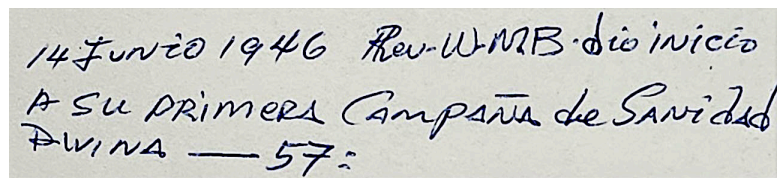 14 Junio 1946 Rev. W.M.B. dio inicio
A su primera Campaña de Sanidad
Divina — 57: